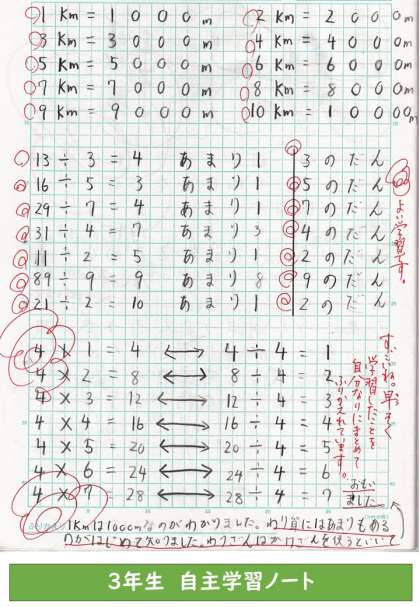 1 km = 1000m　2 km = 2000m
3 km = 3000m　4 km = 4000m
5 km = 5000m　6 km = 6000m
7 km = 7000m　8 km = 8000m
9 km = 9000m　10 km = 10000m
13 ÷ 3 = 4 あまり 1　3のだん
16 ÷ 5 = 3 あまり 1　5のだん
29 ÷ 7 = 4 あまり 1　7のだん
31 ÷ 4 = 7 あまり 3　4のだん
11 ÷ 2 = 5 あまり 1　2のだん
89 ÷ 9 = 9 あまり 8　9のだん
21 ÷ 2 = 10 あまり 1　2のだん
よい学習です。
4 × 1 = 4 ↔ 4 ÷ 4 = 1
4 × 2 = 8 ↔ 8 ÷ 4 = 2
4 × 3 = 12 ↔ 12 ÷ 4 = 3
4 × 4 = 16 ↔ 16 ÷ 4 = 4
4 × 5 = 20 ↔ 20 ÷ 4 = 5
4 × 6 = 24 ↔ 24 ÷ 4 = 6
4 × 7 = 28 ↔ 28 ÷ 4 = 7
すごいね。早そく
学習したことを
自分なりにまとめて
ふりかえれています。
おもい
ました
1kmは1000mなのがわかりました。わり算にはあまりもある
のがはじめて知りました。わりざんはかけざんを使うといいて
3年生 自主学習ノート